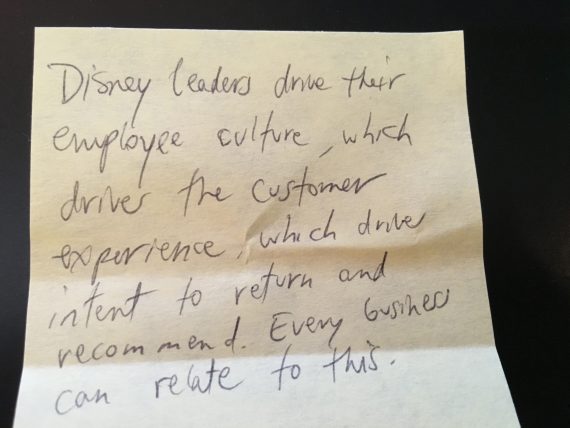 Disney leaders drive their
employee culture, which
drives the customer
experience, which drive
intent to return and
recommend. Every business
can relate to this.